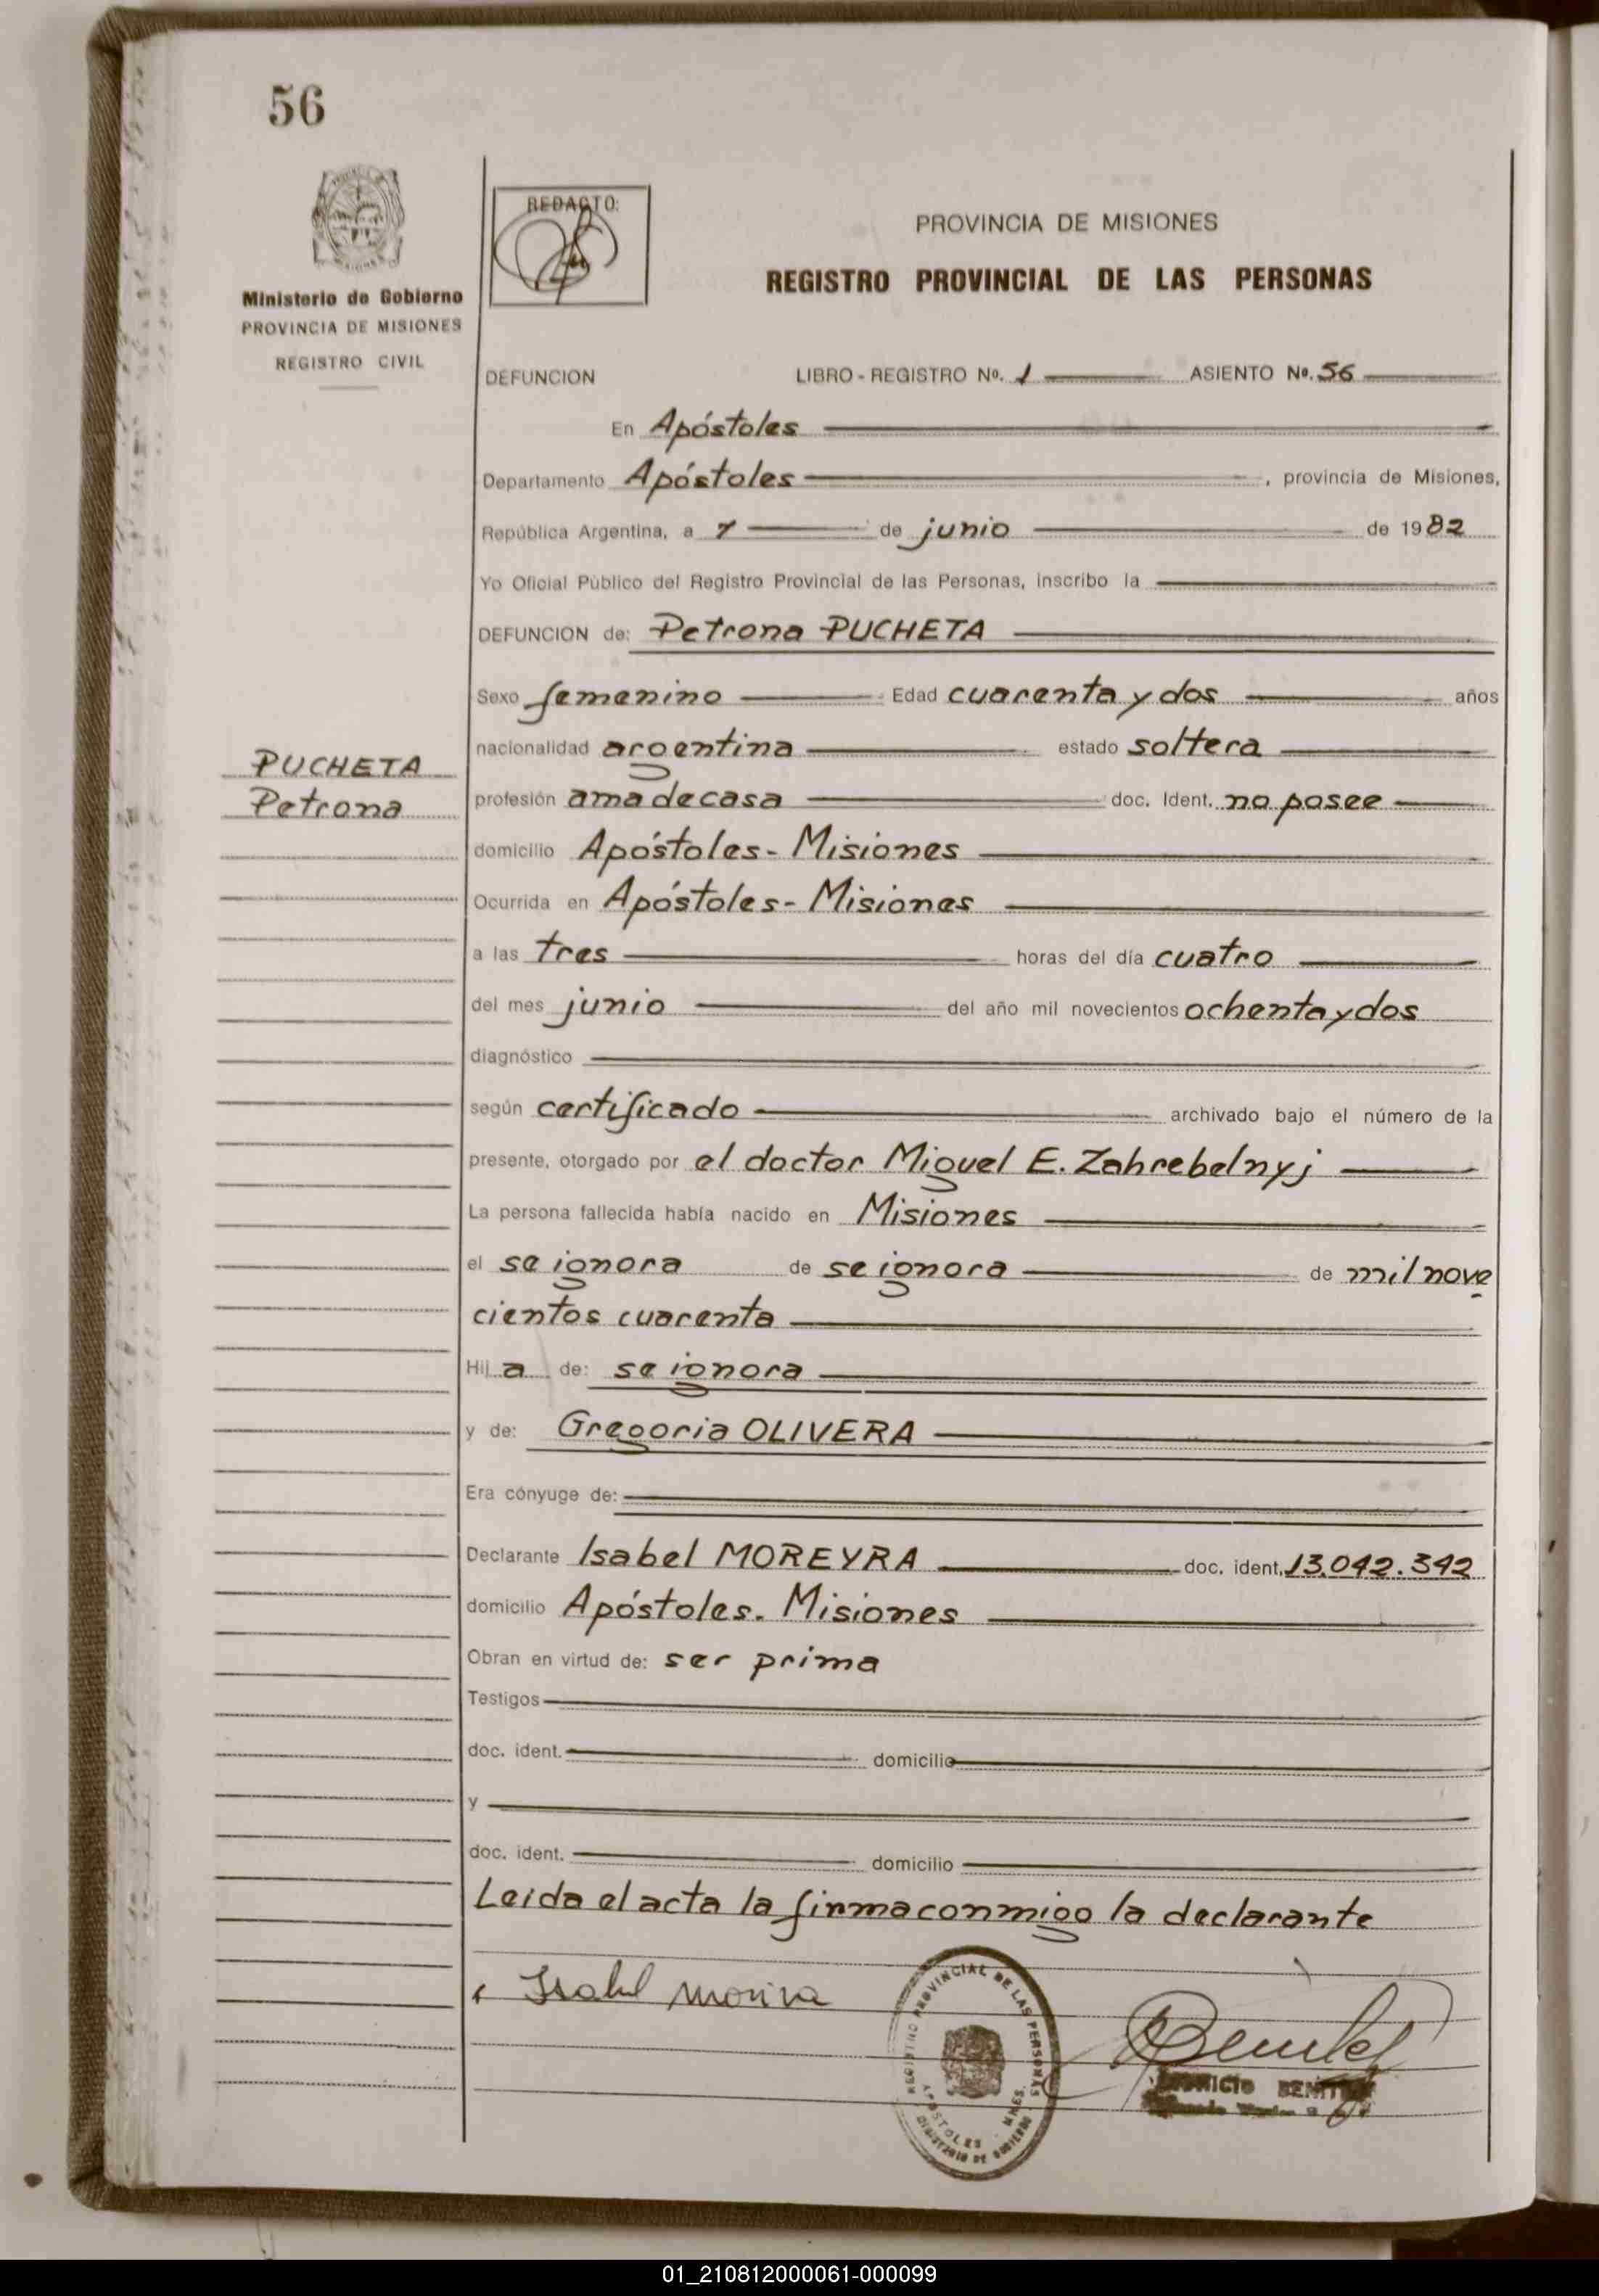 56
REDACTO:
PROVINCIA DE MISIONES
REGISTRO PROVINCIAL DE LAS PERSONAS
Ministerio de Gobierno
PROVINCIA DE MISIONES
REGISTRO CIVIL
DEFUNCION LIBRO - REGISTRO Nº. 1 ASIENTO Nº. 56
En Apóstoles
Departamento Apóstoles, provincia de Misiones,
República Argentina, a 7 de junio de 1982
Yo Oficial Público del Registro Provincial de las Personas, inscribo la
DEFUNCION de: Petrona PUCHETA
Sexo femenino Edad cuarenta y dos años
nacionalidad argentina estado soltera
PUCHETA
Petrona
profesión ama de casa doc. Ident. no posee
domicilio Apóstoles - Misiones
Ocurrida en Apóstoles - Misiones
a las tres horas del día cuatro
del mes junio del año mil novecientos ochenta y dos
diagnóstico
según certificado archivado bajo el número de la
presente, otorgado por el doctor Miguel E. Zahrebelnyj
La persona fallecida había nacido en Misiones
el se ignora de se ignora de mil nove
cientos cuarenta
Hij a de: se ignora
y de: Gregoria OLIVERA
Era cónyuge de:
Declarante Isabel MOREYRA doc. ident. 13.042.342
domicilio Apóstoles. Misiones
Obran en virtud de: ser prima
Testigos
doc. ident. domicilio
y
doc. ident. domicilio
Leida el acta la firma conmigo la declarante
Isabel
REGISTRO PROVINCIAL DE LAS PERSONAS
APOSTOLES - MNES.
MINISTERIO DE GOBIERNO
01_210812000061-000099